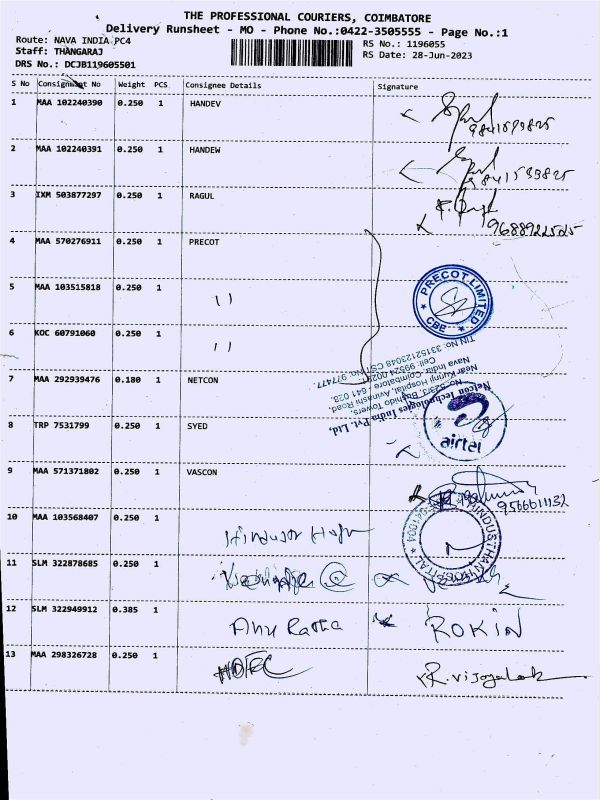 THE PROFESSIONAL COURIERS, COIMBATORE
Delivery Runsheet - MO - Phone No.:0422-3505555 - Page No.:1
Route: NAVA INDIA PC4
RS No.: 1196055
Staff: THANGARAJ
RS Date: 28-Jun-2023
DRS No.: DCJB119605501
S No Consignment No Weight PCS Consignee Details Signature
1 MAA 102240390 0.250 1 HANDEV
2 MAA 102240391 0.250 1 HANDEW
3 IXM 503877297 0.250 1 RAGUL
9688922525
4 MAA 570276911 0.250 1 PRECOT
5 MAA 103515818 0.250 1 ''
PRECOT LIMITED
CBE
6 KOC 60791060 0.250 1 ''
7 MAA 292939476 0.180 1 NETCON
Netcon Technologies India Pvt Ltd,
Towers,
Near Kunnji Hospital, Avinashi Road,
Nava India, Coimbatore - 641 028.
TIN NO: 33152123048 CST NO: 977477
airtel
8 TRP 7531799 0.250 1 SYED
9 MAA 571371802 0.250 1 VASCON
9566611132
10 MAA 103568407 0.250 1
HINDUSTHAN HOSPITAL
641004
11 SLM 322878685 0.250 1
12 SLM 322949912 0.385 1 Anu Radha ROKIN
13 MAA 298326728 0.250 1 HDFC